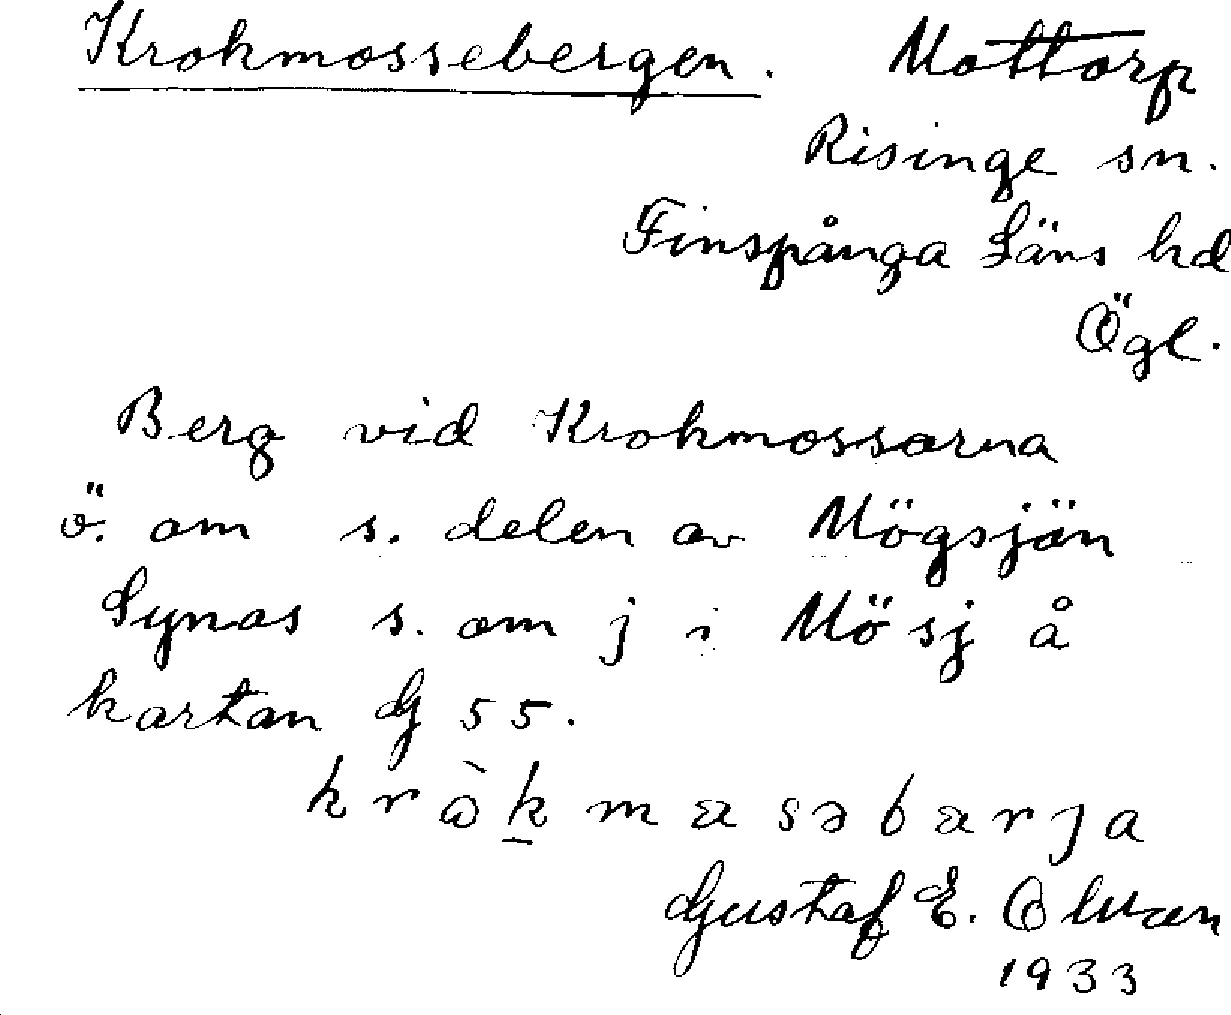 Krokmossebergen. Mottorp
Risinge sn.
Finspånga Läns hd
Ögl.
Berg vid Krokmossarna
ö. om s. delen av Mögsjön
Synas s. om j i Mösj å
kartan G 55.
Gustaf E. Olwæn
1933